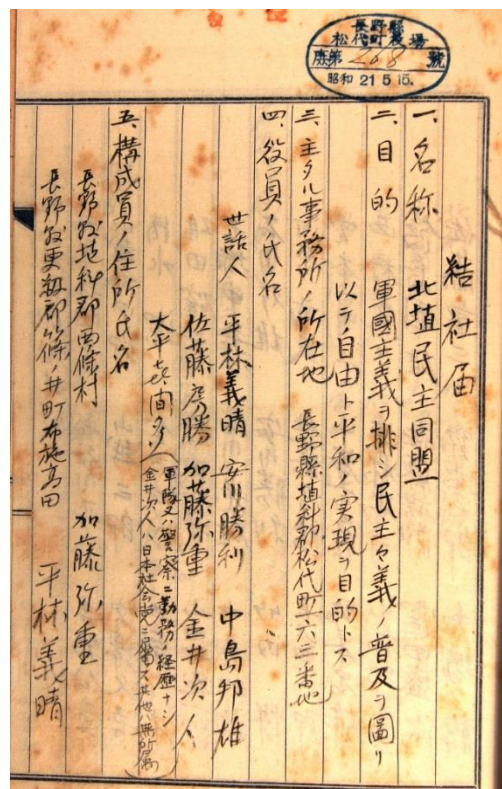 長野縣
松代町役場
庶第268號
昭和 21.5.15.
結社届
一、名称 北埴民主同盟
二、目的 軍國主義ヲ排シ民主々義ノ普及ヲ圖リ
以テ自由ト平和ノ実現ヲ目的トス
三、主タル事務所ノ所在地 長野縣埴科郡松代町一六三番地
四、役員ノ氏名
世話人 平林義晴 安川勝利 中島邦雄
佐藤房勝 加藤弥重 金井次人
大平喜間多
(軍隊又ハ警察ニ勤務ノ経歴ナシ
金井次人ハ日本社会党ニ属ス其他ハ無所属)
五、構成員ノ住所氏名
長野縣埴科郡西條村 加藤弥重
長野縣更級郡篠ノ井町布施高田 平林義晴